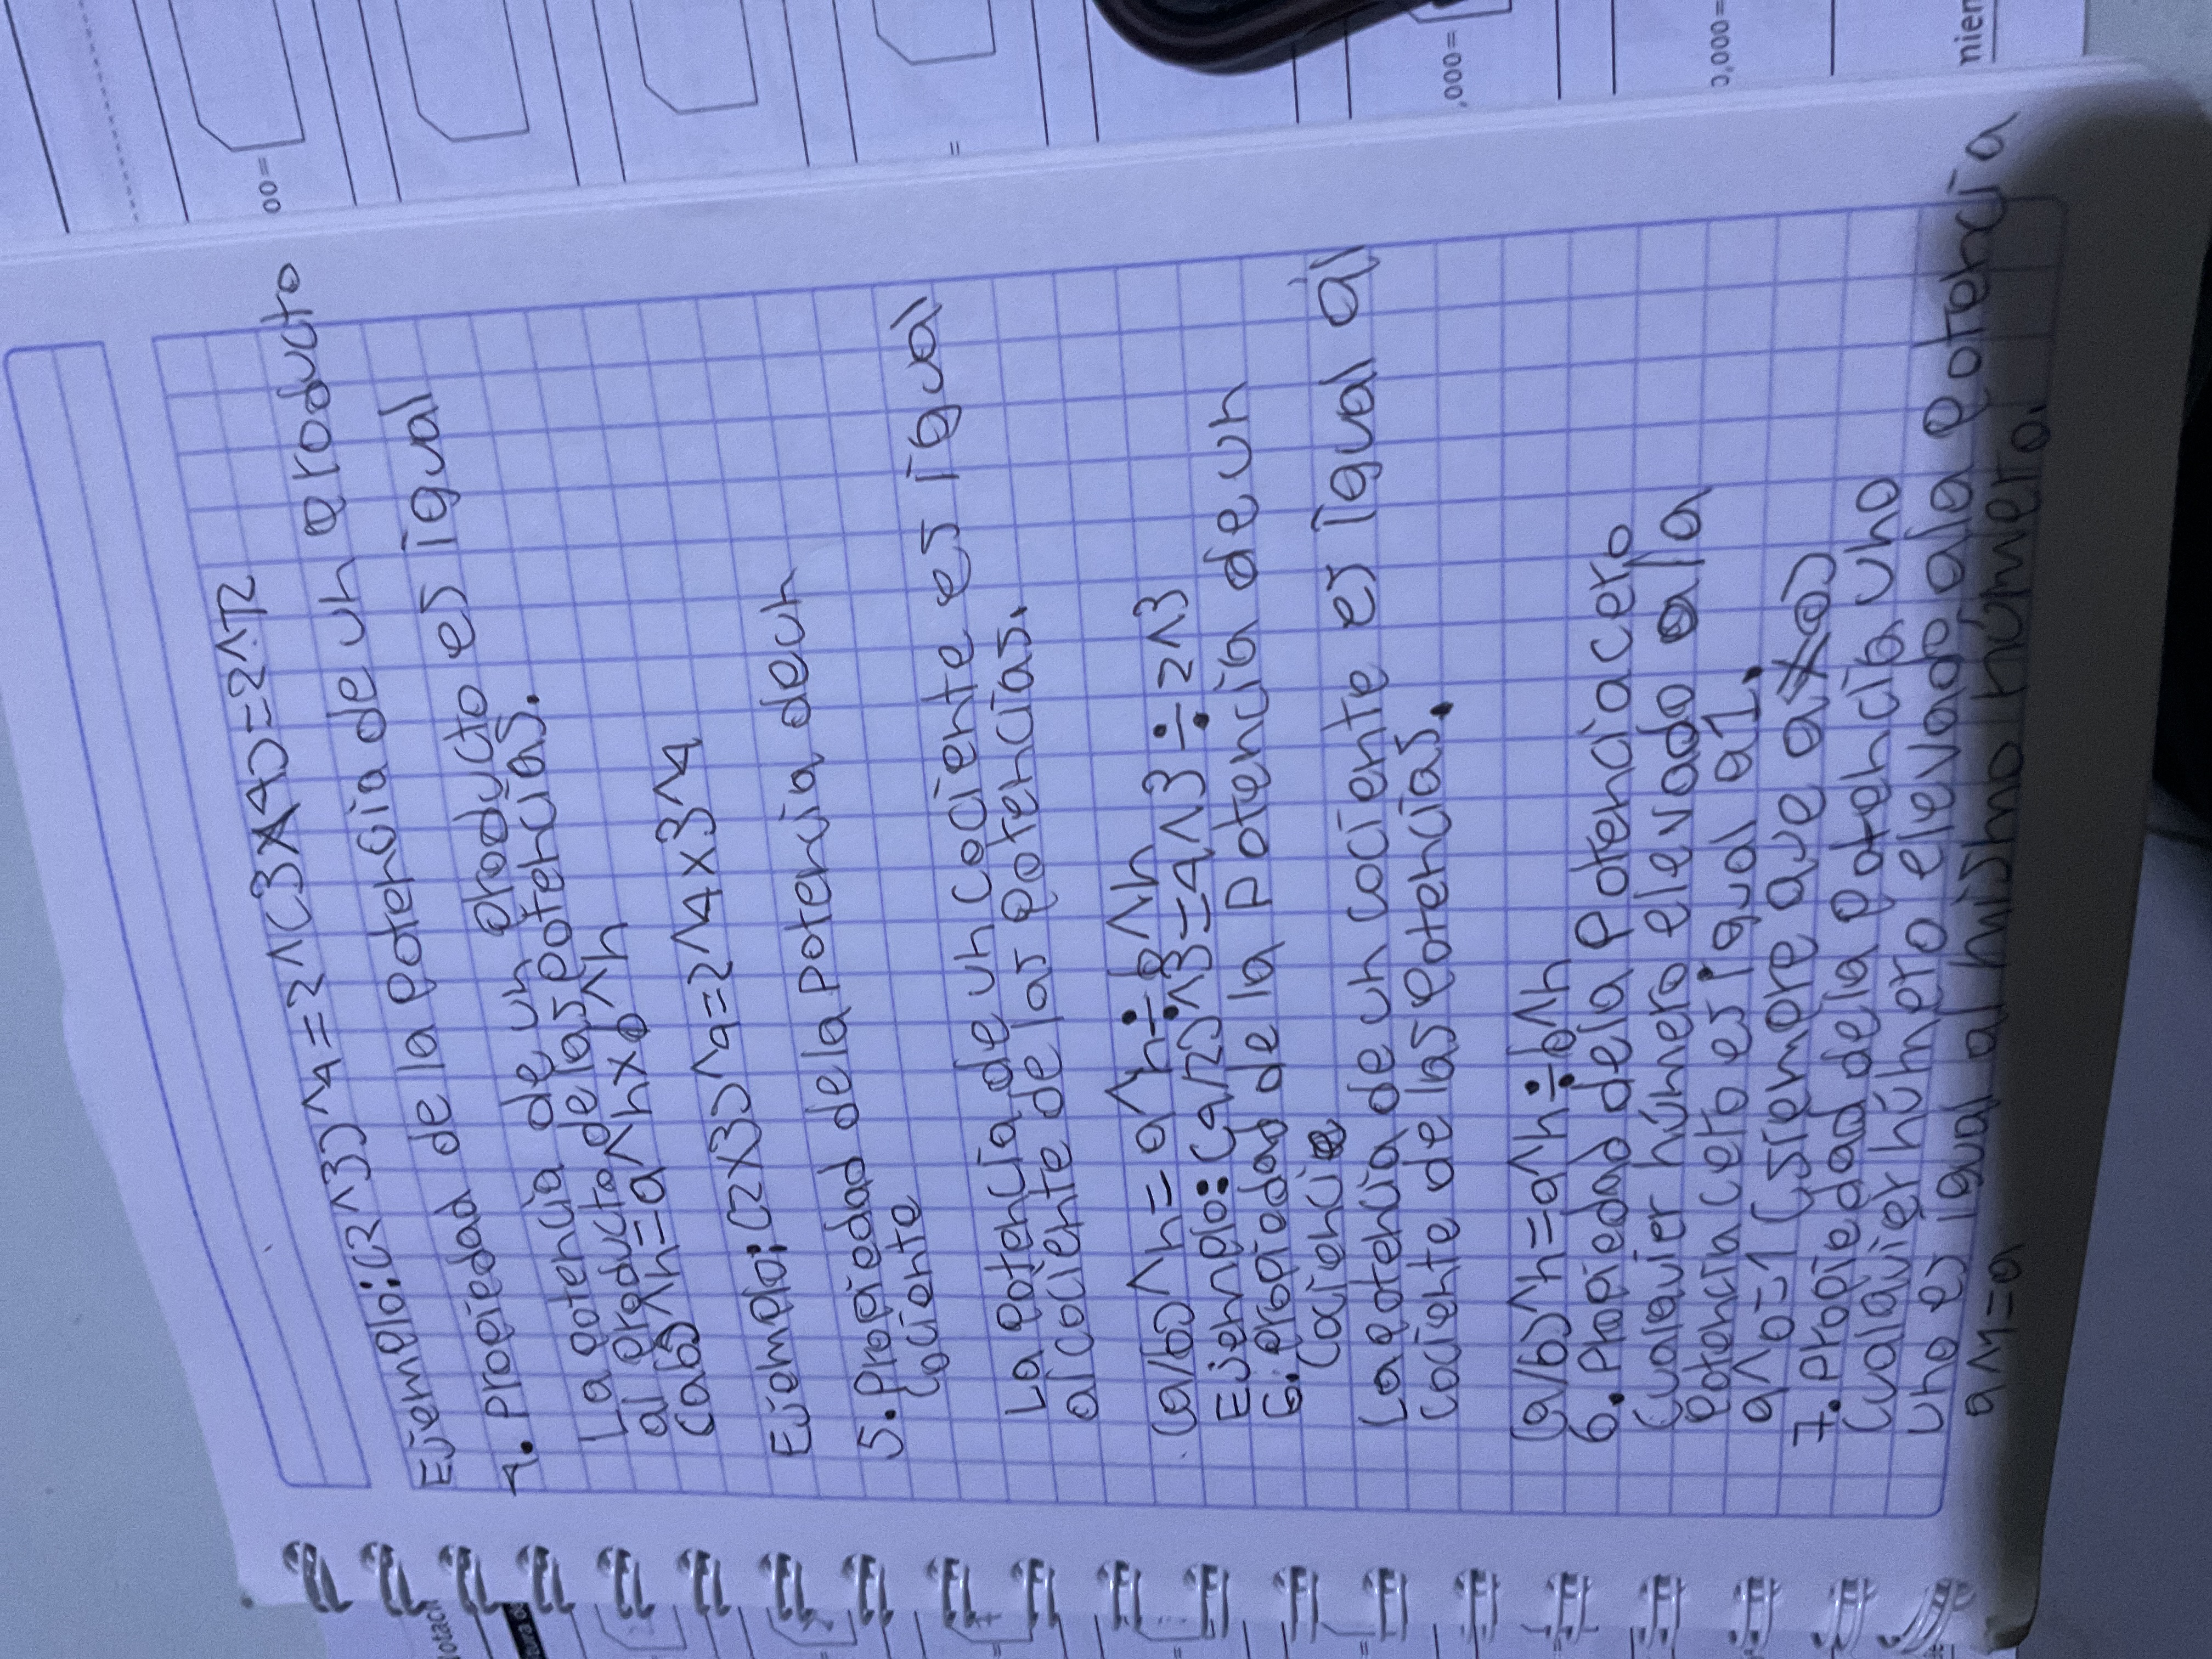 Ejemplo:(2^3)^4=2^(3X4)=2^12
4. Propiedad de la potencia de un producto
La potencia de un producto es igual
al producto de las potencias.
(ab)^n=a^nxb^n
Ejemplo:(2X3)^4=2^4x3^4
5. Propiedad de la potencia deun
cociente
La potencia de un cociente es igual
al cociente de las potencias.
(a/b)^n=a^n÷b^n
Ejemplo:(4/2)^3=4^3÷2^3
6. propiedad de la potencia de un
cociente
La potencia de un cociente es igual al
cociente de las potencias.
(a/b)^n=a^n÷b^n
6. Propiedad dela potenciacero
Cualquier número elevado a la
potencia cero es igual a1.
a^0=1(siempre que a≠0)
7. Propiedad de la potencia uno
Cualquier número elevado ala potencia
uno es igual al mismo número.
a^1=a
00=
=
,000=
0,000=
nien
notaci